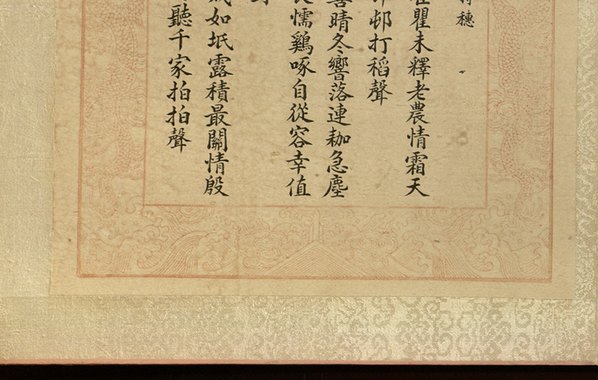 持穗
瞿瞿未釋老農情霜天
邨打稻聲
喜晴冬響落連耞急塵
懦鷄啄自從容幸值
如坻露積最關情殷
聽千家拍拍聲